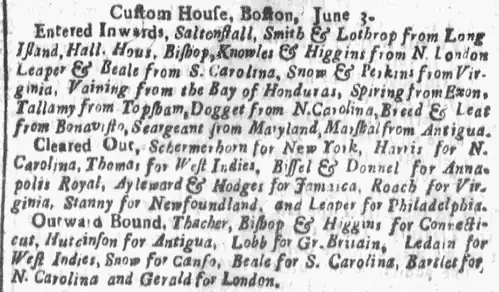 Cuſtom Houſe, Boſton, June 3.
Entered Inwards, Saltonſtall, Smith & Lothrop from Long
Iſland, Hall, Hous, Biſhop, Knowles & Higgins from N. London
Leaper & Beale from S. Carolina, Snow & Perkins from Vir-
ginia, Vaining from the Bay of Honduras, Spiring from Exon,
Tallamy from Topſham, Dogget from N. Carolina, Breed & Leat
from Bonaviſto, Seargeant from Maryland, Marſhal from Antigua.
Cleared Out, Schermerhorn for New York, Harris for N.
Carolina, Thomas for Weſt Indies, Biſſel & Donnel for Anna-
polis Royal, Ayleward & Hodges for Jamaica, Roach for Vir-
ginia, Stanny for Newfoundland, and Leaper for Philadelphia.
Outward Bound, Thacher, Biſhop & Higgins for Connecti-
cut, Hutcinſon for Antigua, Lobb for Gr. Britain, Ledain for
Weſt Indies, Snow for Canſo, Beale for S. Carolina, Bartlet for
N. Carolina and Gerald for London.